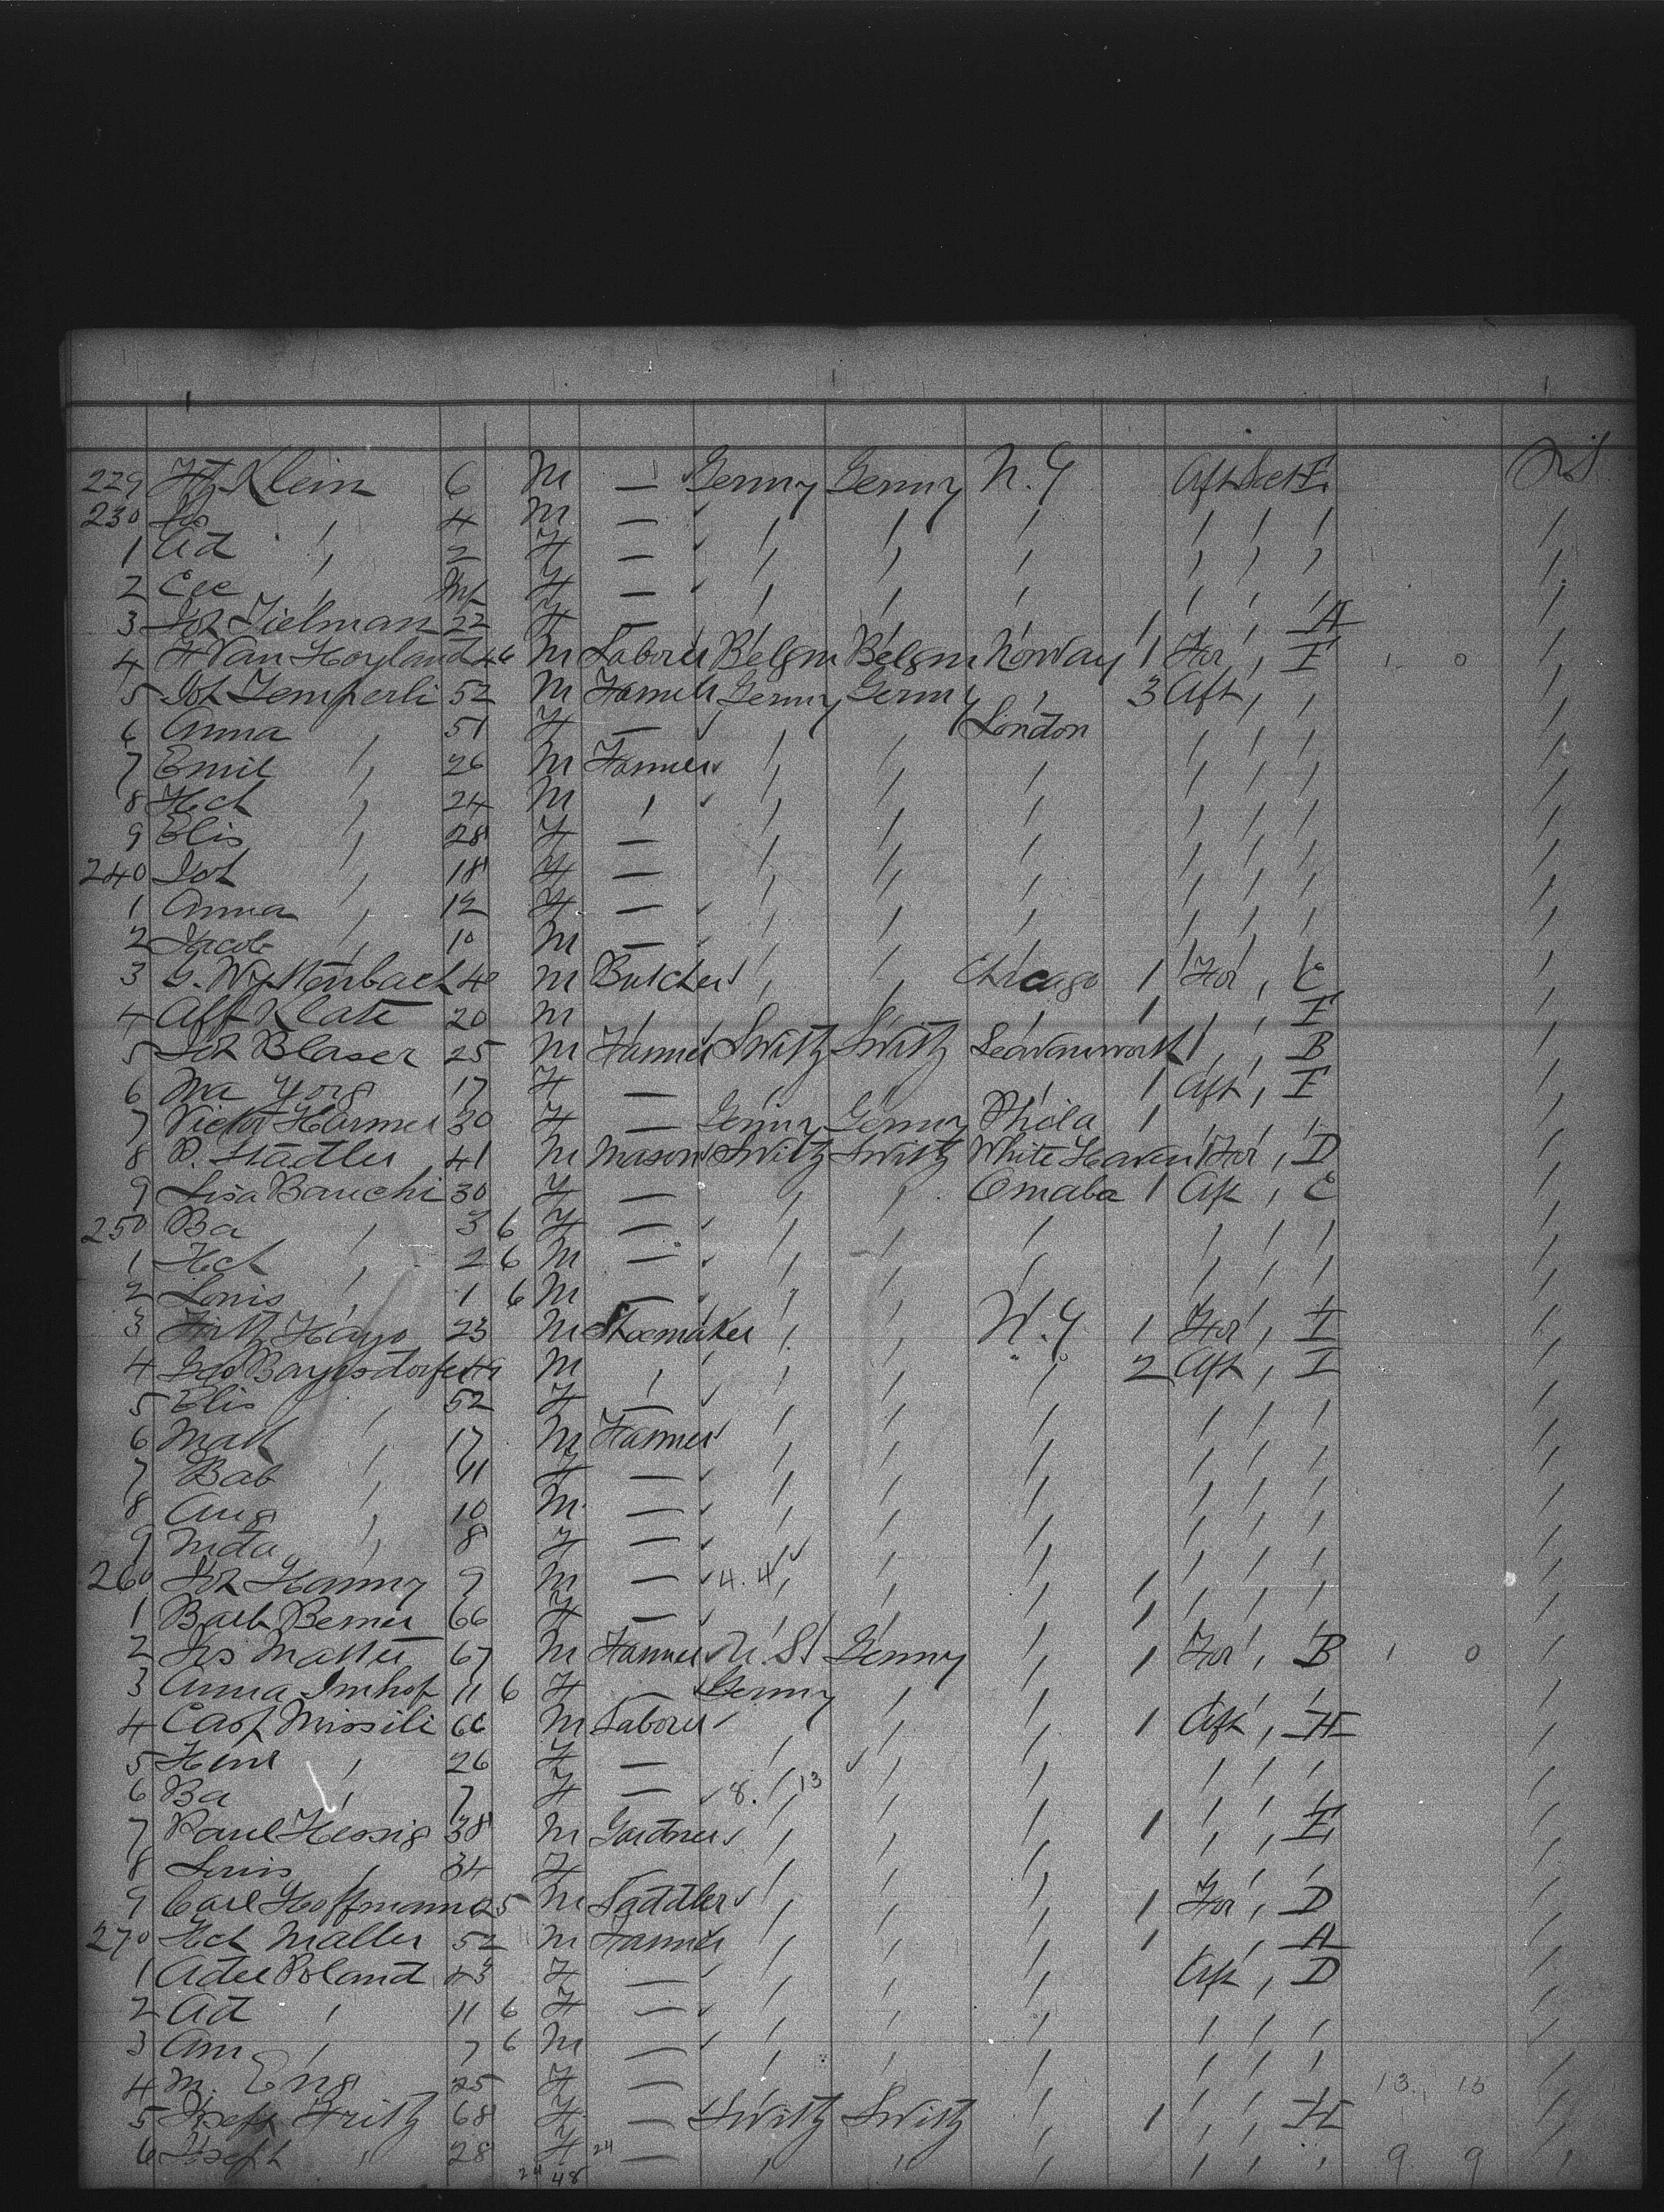 229 Klein 6 M — Germy Germy N.Y Aft Sect E
230 Jos 4 M —
1 Ad 2 F —
2 Inf F —
3 Joh Tielman 22 F — 1 A
4 F Van Hoyland 46 M Laborer Belgm Belgm Norway 1 For E 1 0
5 Joh Temperli 52 M Farmer Germy Germy 3 Aft
6 Anna 51 F — London
7 Emil 26 M Farmer
8 Hch 24 M
9 Elis 28 F —
240 Joh 18 F —
1 Anna 12 F —
2 Jacob 10 M —
3 G. Wyttenbach 40 M Butcher Chicago 1 For C
4 Alf Klate 20 M 1 E
5 Joh Blaser 25 M Farmer Switz Switz Leavanworth 1 B
6 Ma Yorg 17 F — 1 Aft E
7 Victor Harmer 30 F — Germy Germy Phila 1
8 R. Stadler 41 M Mason Switz Switz White Haven 1 For D
9 Lisa Bauchi 30 F — Omaha 1 Aft C
250 Ba 3 6 F —
1 Hch 2 6 M —
2 Louis 1 6 M —
3 Hayo 23 M Shoemaker N.Y. 1 For I
4 Geo Bayersdorfer 49 M 2 Aft I
5 Elis 52 F —
6 Math 17 M Farmer
7 Bab 11 F —
8 Aug 10 M —
9 8 F —
260 Joh Hanny 9 M — 4.4 1
1 Barb Berner 66 F — 1
2 Jos Matter 67 M Farmer U.St Germy 1 For B 1 0
3 Anna Imhof 11 6 F — Germy
4 Casp Missili 66 M Laborer 1 Aft H
5 26 F —
6 Ba 7 F — 8. 13
7 Paul Hessig 38 M Gardner 1 E
8 Louis 34 F
9 Carl Hoffmann 25 M Saddler 1 For D
270 Hch Maller 52 M Farmer 1 A
1 Adel Roland 43 F — Aft D
2 Ad 11 6 F —
3 Am 7 6 M —
4 M. Eng 25 F — 13 15
5 Fritz 68 F — Switz Switz 1 H
6 Joseph 28 F 24 — 9 9
24 48